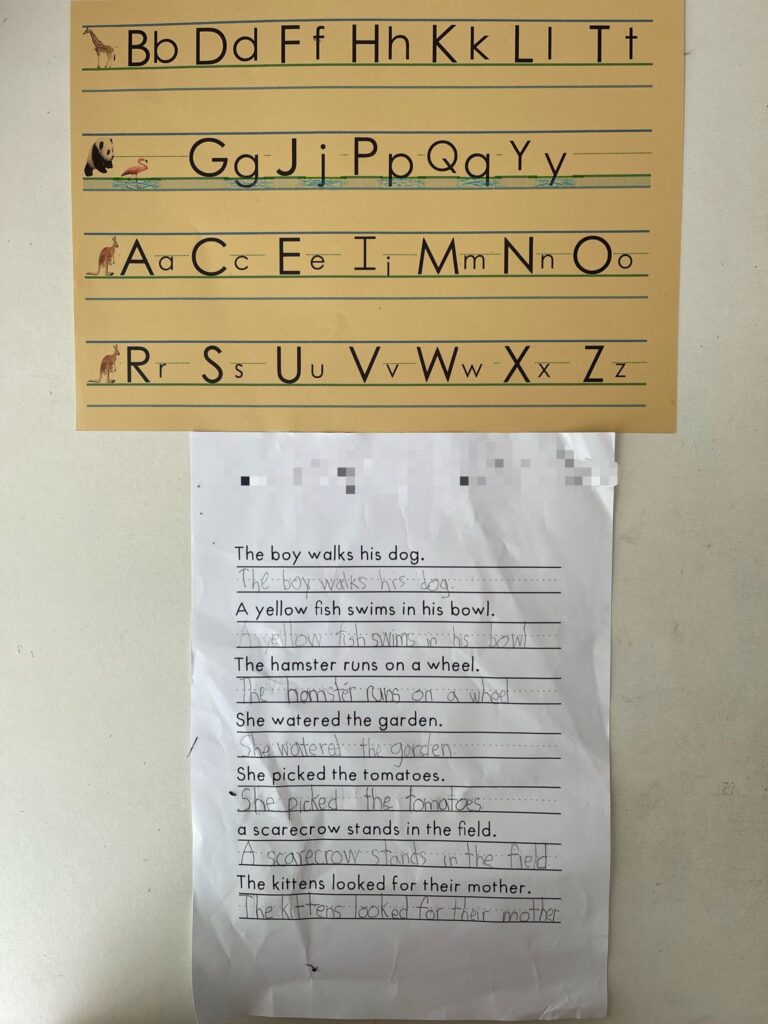 Bb Dd Ff Hh Kk Ll Tt
Gg Jj Pp Qq Yy
Aa Cc Ee Ii Mm Nn Oo
Rr Ss Uu Vv Ww Xx Zz
The boy walks his dog.
The boy walks his dog.
A yellow fish swims in his bowl.
A yellow fish swims in his bowl
The hamster runs on a wheel.
The hamster runs on a wheel
She watered the garden.
She watered the garden.
She picked the tomatoes.
She picked the tomatoes.
a scarecrow stands in the field.
A scarecrow stands in the field.
The kittens looked for their mother.
The kittens looked for their mother